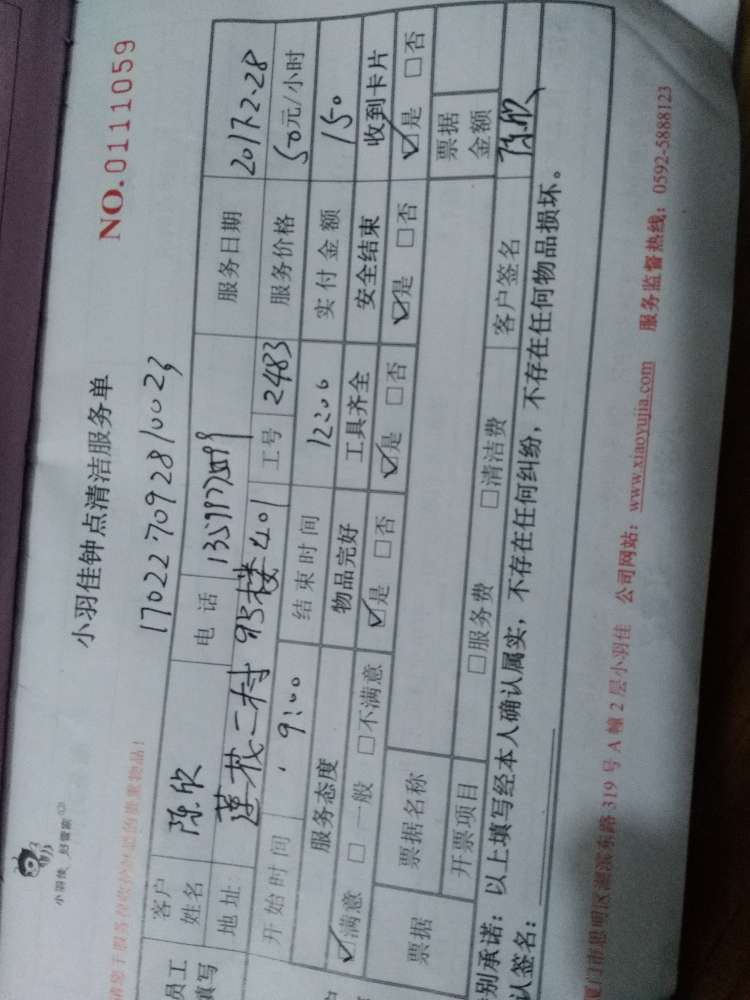 小羽佳 好管家
小羽佳钟点清洁服务单
NO.0111059
170227092810023
客户姓名 陈欣 电话 服务日期 2017.2.28
地址: 莲花二村95楼401 工号 2483 服务价格 50元/小时
开始时间 9:00 结束时间 12:00 实付金额 150
服务态度 物品完好 工具齐全 安全结束 收到卡片
☑满意 □一般 □不满意 ☑是 □否 ☑是 □否 ☑是 □否 ☑是 □否
票据 票据名称 票据金额
开票项目 □服务费 □清洁费 客户签名 陈欣
别承诺：以上填写经本人确认属实，不存在任何纠纷，不存在任何物品损坏。
认签名：
厦门市思明区湖滨东路319号A幢2层小羽佳 公司网站：www.xiaoyujia.com 服务监督热线：0592-5888123